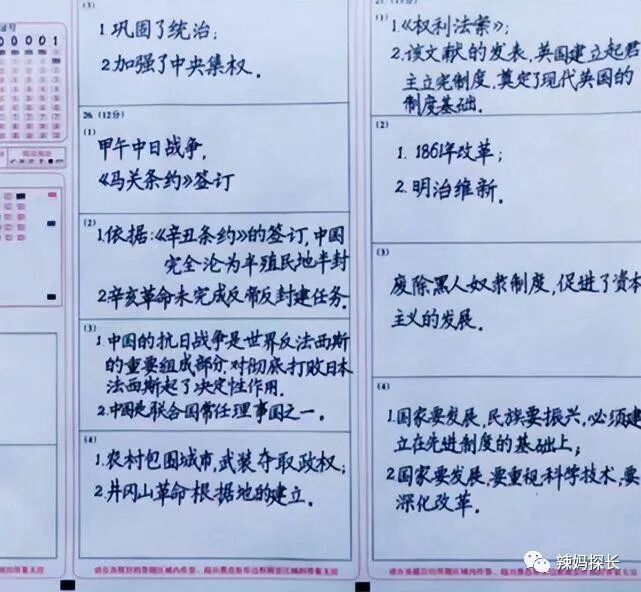 号
00001
(3)
1 巩固了统治;
2 加强了中央集权.
26. (12分)
(1)
甲午中日战争,
《马关条约》签订
(2)
1.依据:《辛丑条约》的签订,中国
完全沦为半殖民地半封
2.辛亥革命未完成反帝反封建任务.
(3)
1.中国的抗日战争是世界反法西斯
的重要组成部分.对彻底打败日本
法西斯起了决定性作用.
2.中国是联合国常任理事国之一.
(4)
1.农村包围城市,武装夺取政权;
2.井冈山革命根据地的建立.
(1)
1.《权利法案》;
2.该文献的发表,英国建立起君
主立宪制度,奠定了现代英国的
制度基础.
(2)
1. 1861年改革;
2. 明治维新.
(3)
废除黑人奴隶制度,促进了资本
主义的发展.
(4)
1.国家要发展,民族要振兴,必须建
立在先进制度的基础上;
2.国家要发展,要重视科学技术,要
深化改革.
辣妈探长